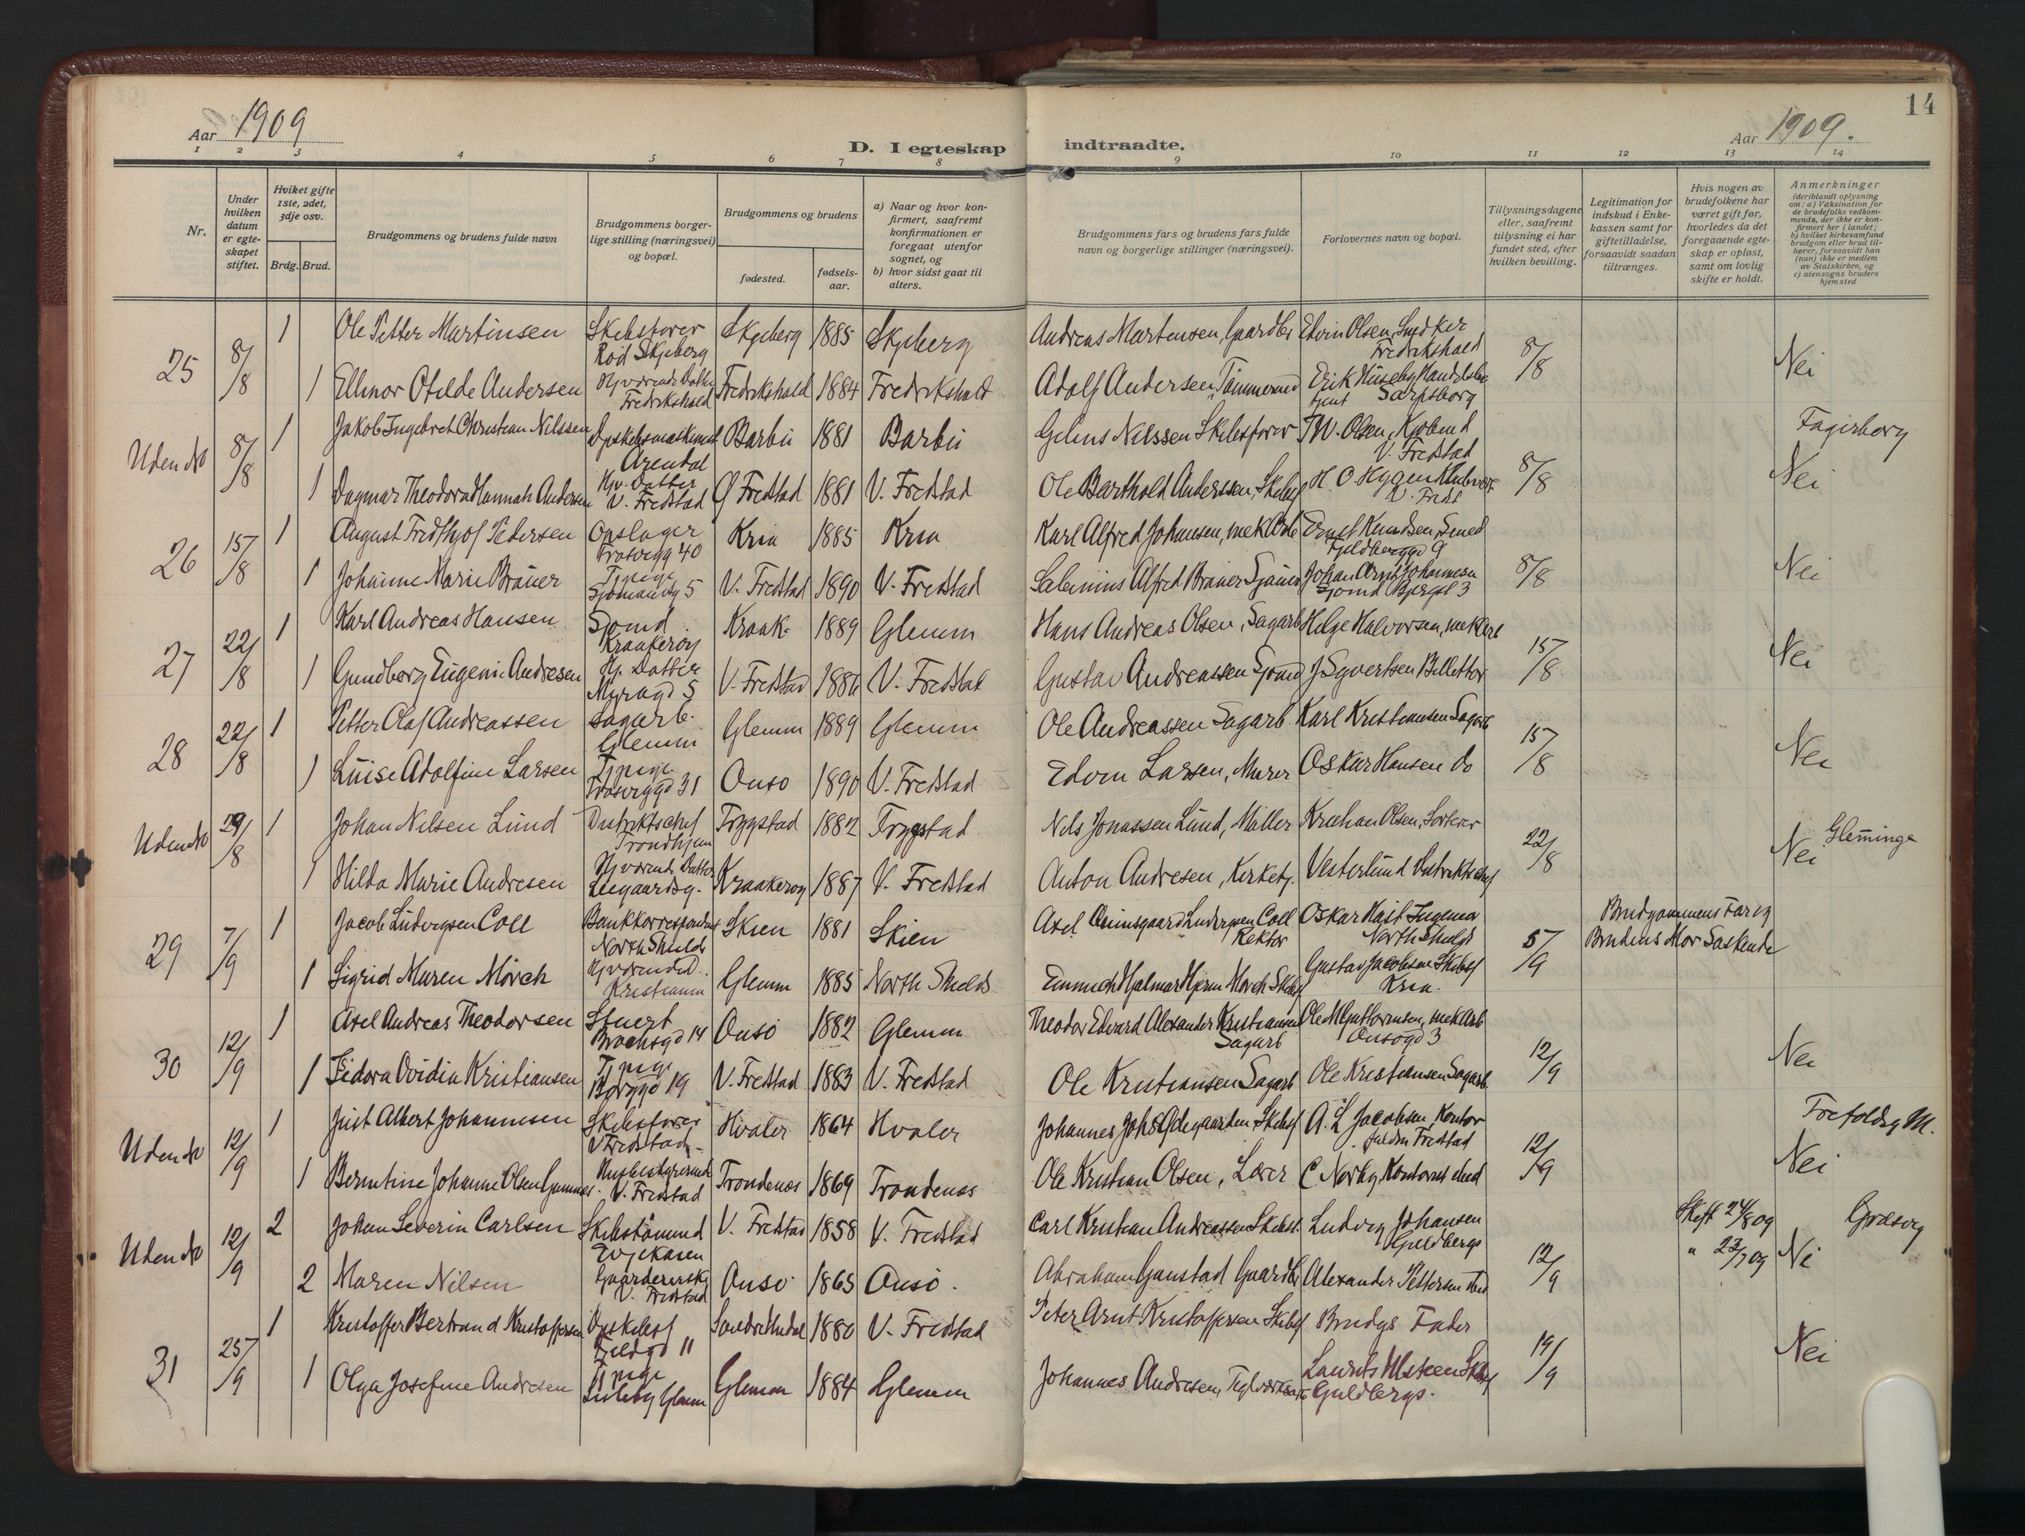 14
Aar 1909
Aar 1909.
D. I egteskap indtraadte.
1 2 3 4 5 6 7 8 9 10 11 12 13 14
Nr.
Under hvilken datum er egteskapet stiftet.
Hviket gifte 1ste, 2det, 3dje osv.
Brdg. Brud.
Brudgommens og brudens fulde navn
Brudgommens borgerlige stilling (næringsvei) og bopæl.
Brudgommens og brudens
fødested.
fødselsaar.
a) Naar og hvor konfirmert, saafremt konfirmationen er foregaat utenfor sognet, og
b) hvor sidst gaat til alters.
Brudgommens fars og brudens fars fulde navn og borgerlige stillinger (næringsvei).
Forlovernes navn og bopæl.
Tillysningsdagene eller, saafremt tillysning ei har fundet sted, efter hvilken bevilling.
Legitimation for indskud i Enkekassen samt for giftetilladelse, forsaavidt saadan tiltrænges.
Hvis nogen av brudefolkene har været gift før, hvorledes da det foregaaende egteskap er opløst, samt om lovlig skifte er holdt.
Anmerkninger (deriblandt oplysning om: a) Vaksination for de brudefolks vedkommende, der ikke er konfirmert her i landet; b) hvilket kirkesamfund brudgom eller brud tilhører, forsaavidt han (hun) ikke er medlem av Statskirken, og c) utensogns bruders hjemsted
25 8/8 1 Ole Petter Martinsen Skibsfører Rød Skjeberg Skjeberg 1885 Skjeberg Andreas Martensen, Gaardbr Edvin Olsen, Snedker Fredrikshald 8/8 Nei
1 Ellinor Otilde Andersen Hjværende Datter Fredrikshald Fredrikshald 1884 Fredrikshald Adolf Andersen, Tømmermd Erik Huseby Handelsbetjent Sarpsborg
Uden No 8/8 1 Jakob Ingebret Christian Nilssen Arendal Barbu 1881 Barbu Nilssen Skibsfører T W. Olsen, Kjøbmd V. Fredstad 8/8 Fagerborg Nei
1 Dagmar Theodora Hannah Andersen Hjv. Datter V. Fredstad Ø Fredstad 1881 V. Fredstad Ole Barthold Anderssen, Skibsf H. O. Hygen V. Freds
26 15/8 1 August Fredthjof Pedersen Opslager Trosvigg 40 Kria 1885 Kria Karl Alfred Johansen, mek Arb Ernst Knudsen, Smed Fjeldberggd 9 8/8 Nei
1 Johanne Marie Bräuer Tjpige Sjømandsg 5 V. Fredstad 1890 V. Fredstad Alfred Bräuer Sjømd Johan Arnt Johannesen Sjømd Bjergst 3
27 22/8 1 Karl Andreas Hansen Sjømd. Kraakerøy Kraak- 1889 Glemm Hans Andreas Olsen, Sagarb Helge Halvorsen, mek Arb 15/8 Nei
1 Gundborg Eugenie Andresen Hj. Datter Myragd 5 V. Fredstad 1886 V. Fredstad Gustav Andreassen Sjømd J Syvertsen Billettør
28 22/8 1 Petter Olaf Andreassen Sagarb. Glemm Glemm 1889 Glemm Ole Andreassen Sagarb. Karl Kristiansen Sagarb 15/8 Nei
1 Luise Adolfine Larsen Tjpige Trosviggd 31 Onsø 1890 V. Fredstad Edvin Larsen, Murer Oskar Hansen do
Uden No 29/8 1 Johan Nilsen Lund Distriktschef Trondhjem Trygstad 1882 Trygstad Nils Jonassen Lund, Møller Kristian Olsen, Sorterer 22/8 Nei Glemminge
1 Hilda Marie Andresen Hjværende Datter Leegaardsg. Kraakerøy 1887 V. Fredstad Anton Andresen, Kirketj. Vesterlund Distriktschef
29 7/9 1 Jacob Ludvigsen Coll Bankkorrespondent North Shields Skien 1881 Skien Axel Ludvigsen Coll Rektor Oskar Ingeniør North Shields 5/9 Brudgommens Far og Brudens Mor Søskende
1 Sigrid Maren Mörch Hjværende D. Kristiania Glemm 1885 North Shields Hjalmar Hjerm Mörch Skibsf Gustav Jacobsen Skibsf Kria.
30 12/9 1 Axel Andreas Theodorsen Stuert Brochsgd 14 Onsø 1882 Glemm Theodor Edvard Alexander Kristiansen Sagarb Ole M Guttormsen, mek Arb Onsøgd 3 12/9 Nei
1 Isidora Ovidia Kristiansen Tjpige Borggd 19 V. Fredstad 1883 V. Fredstad Ole Kristiansen Sagarb Ole Kristiansen Sagarb.
Uden No 12/9 1 Just Albert Johannesen Skibsfører V Fredstad Hvaler 1864 Hvaler Johannes Johs Ødegaarden, Skibsf A. L Jacobsen, Kontor Fredstad 12/9 Nei M.
1 Berntine Johanne Olsen Husbestyrerinde V. Fredstad Trondenæs 1869 Trondenæs Ole Kristian Olsen, Lærer C Nørby, Kontorist ibid
Uden No 12/9 2 Johan Severin Carlsen Skibstømmd Evjekasen V. Fredstad 1858 V. Fredstad Carl Kristian Andreassen Skibst. Ludvig Johansen Guldbergs 12/9 Skift 24/8 09 " 23/7 09 Græsvig Nei
2 Maren Nilsen V. Fredstad Onsø 1865 Onsø. Abraham Gaustad Gaardbr Alexander Pettersen ibid
31 25/9 1 Kristoffer Bertrand Kristoffersen Fjeldgd 11 1880 V. Fredstad Peter Arnt Kristoffersen Skibsf Brudgs Fader 19/9 Nei
1 Olga Josefine Andresen Tjpige Lisleby Glemm Glemm 1884 Glemm Johannes Andresen, Teglverksarb Laurits Skibsf Guldbergs.